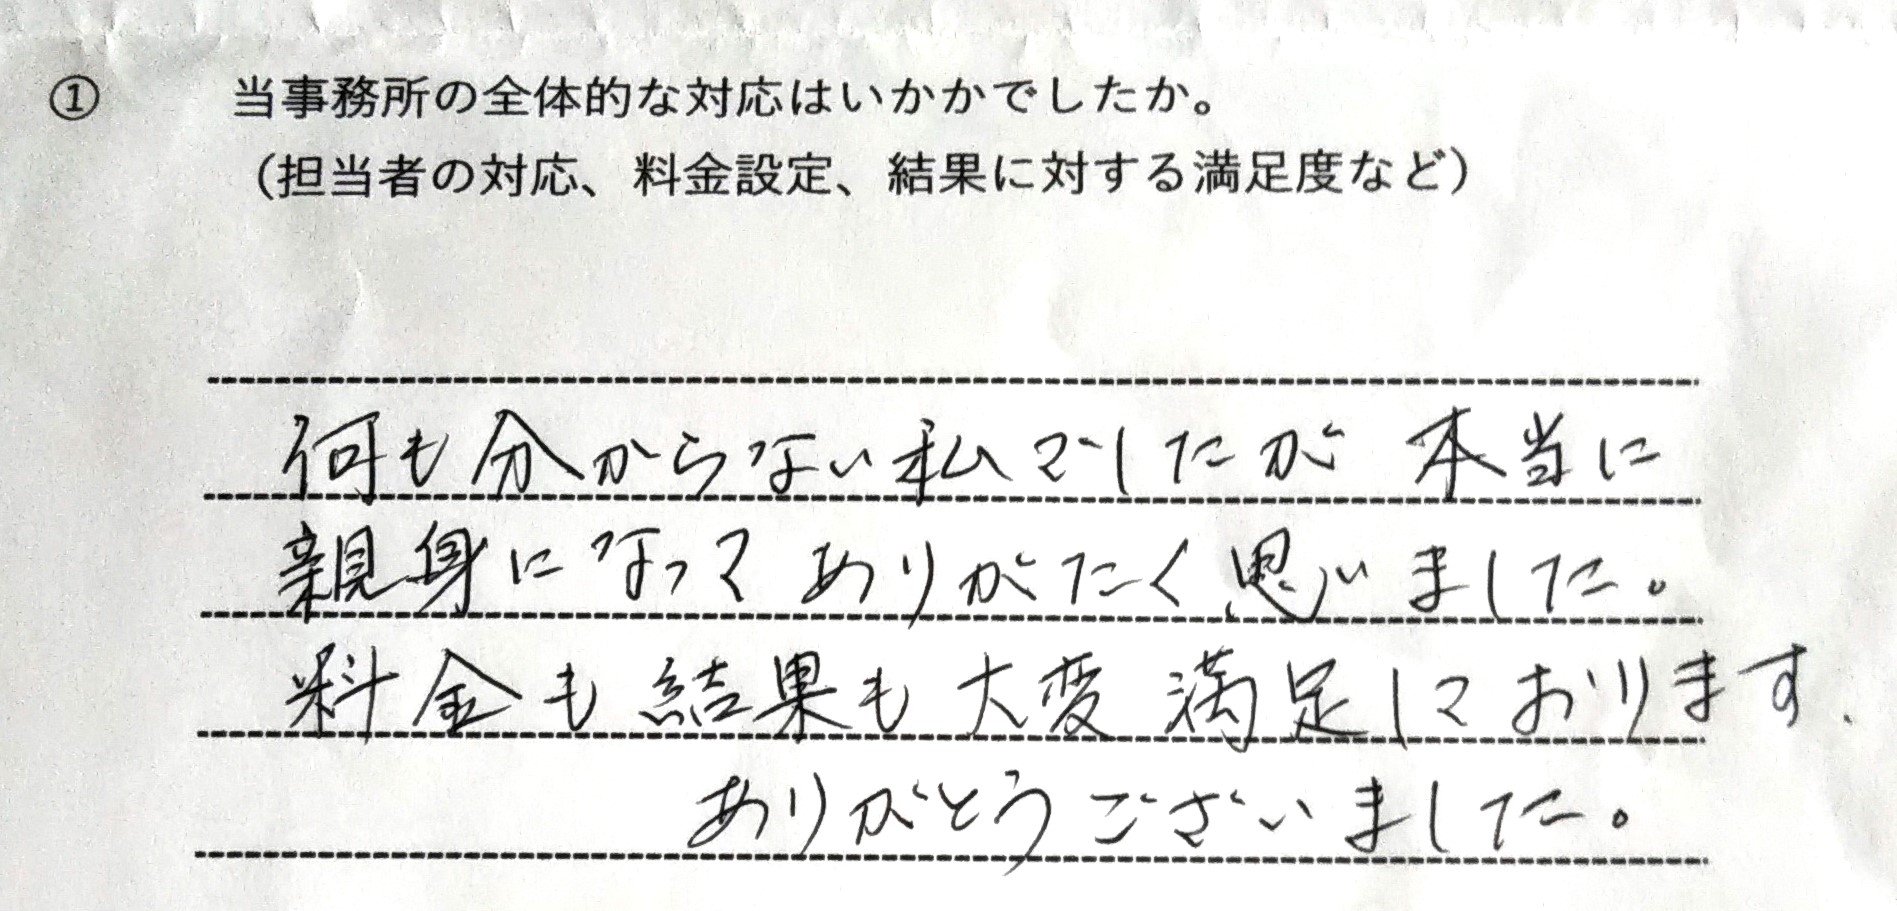 ① 当事務所の全体的な対応はいかかでしたか。
（担当者の対応、料金設定、結果に対する満足度など）
何も分からない私でしたが 本当に
親身になって ありがたく思いました。
料金も結果も大変満足しております.
ありがとうございました。